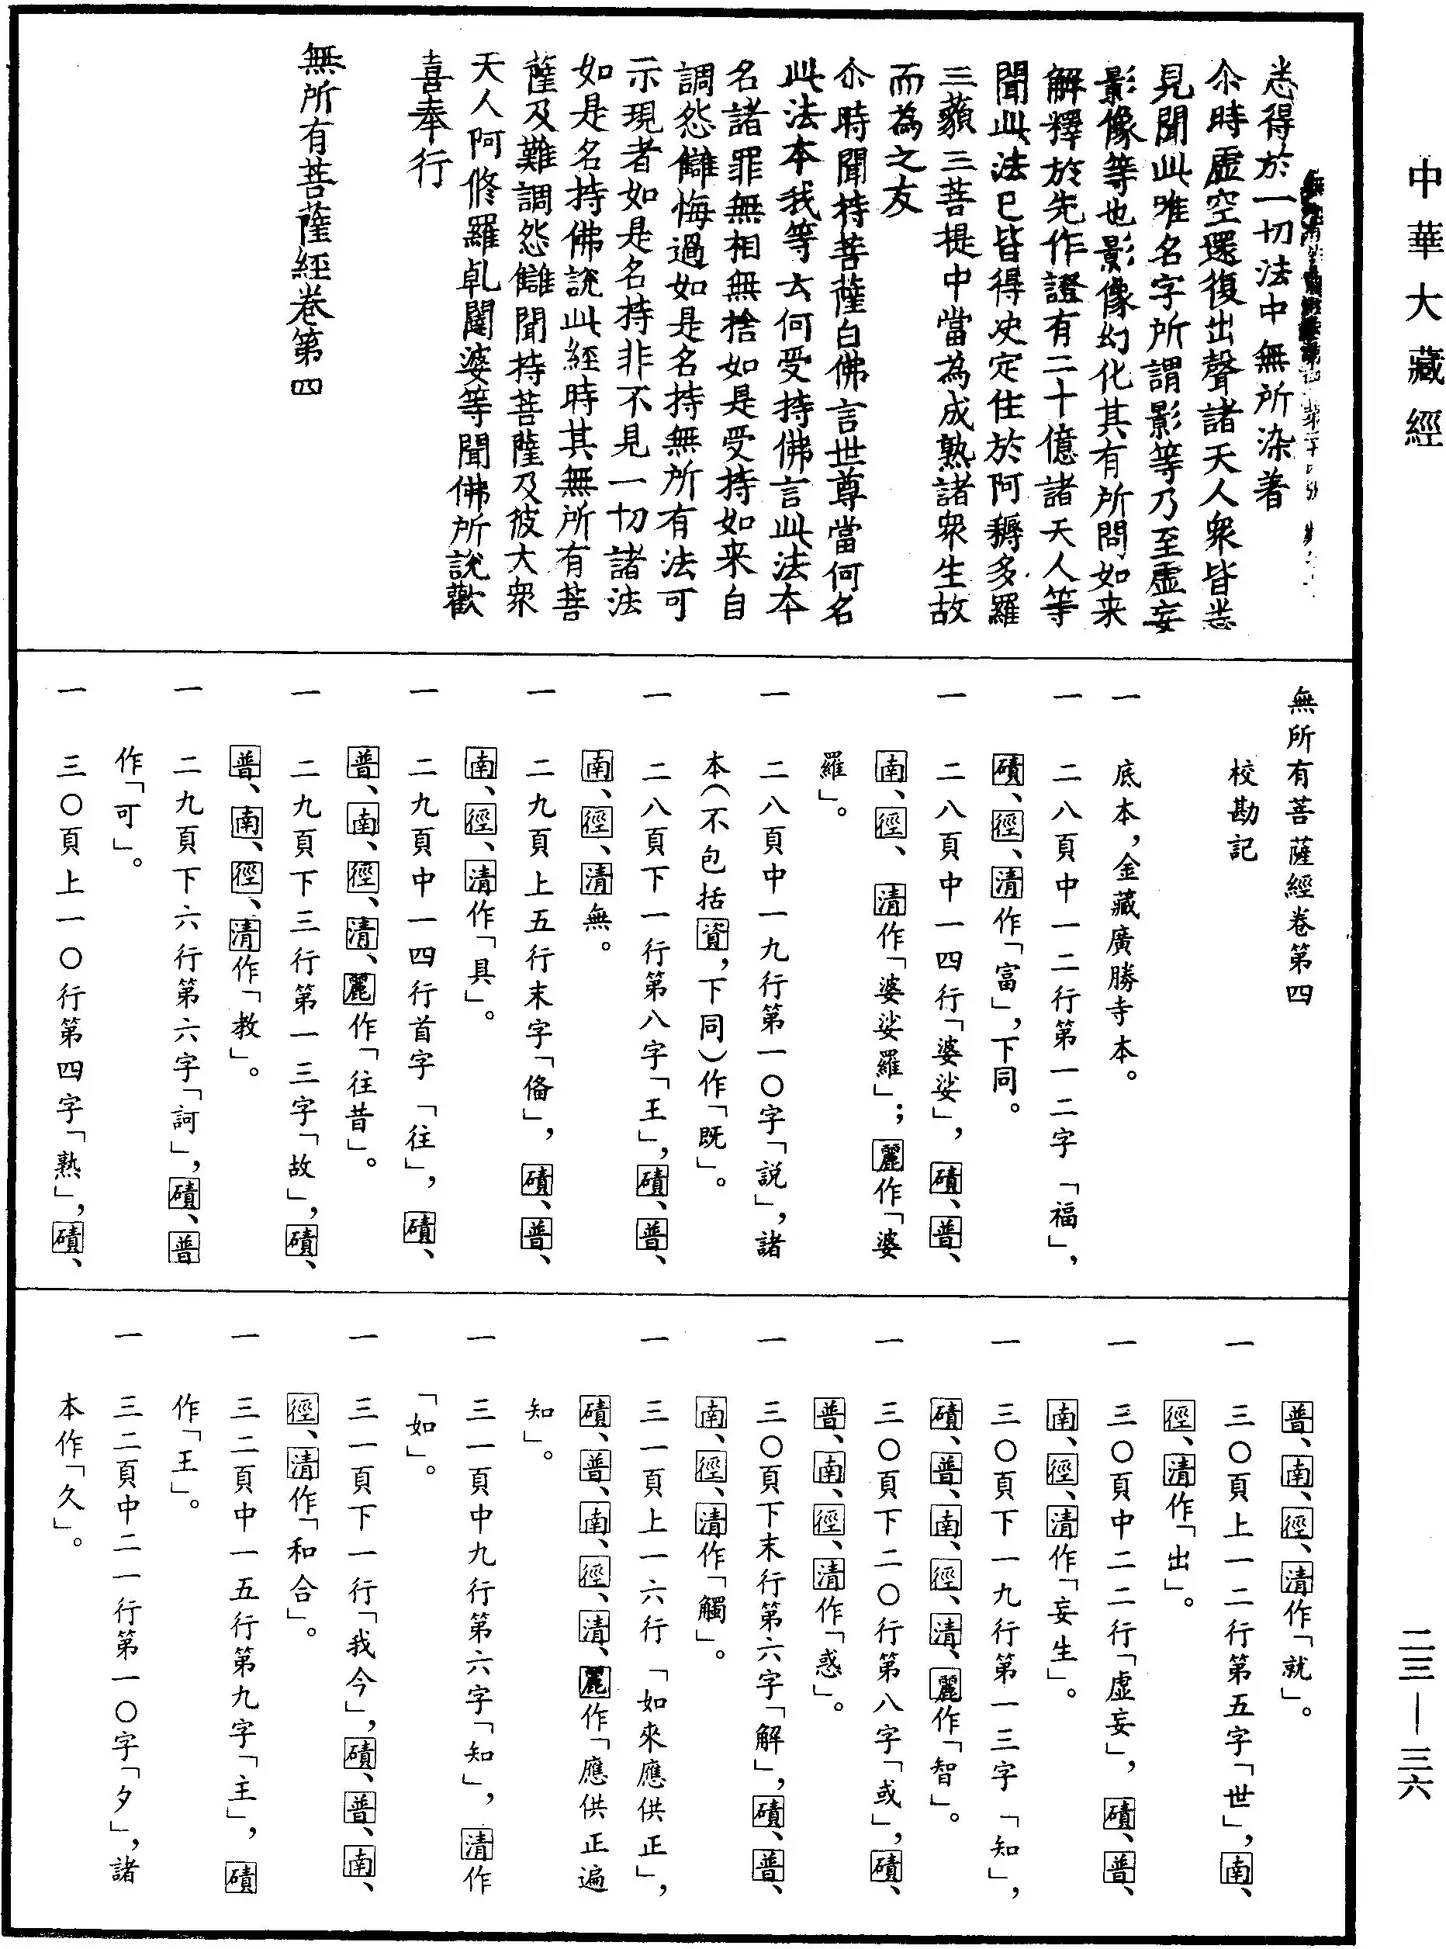 中華大藏經
悉得於一切法中無所染著
尒時虛空還復出聲諸天人衆皆悉
見聞此唯名字所謂影等乃至虛妄
影像等也影像幻化其有所問如来
解釋於先作證有二十億諸天人等
聞此法已皆得决定住於阿耨多羅
三藐三菩提中當為成熟諸衆生故
而為之友
尒時聞持菩薩白佛言世尊當何名
此法本我等云何受持佛言此法本
名諸罪無相無捨如是受持如来自
調怨讎悔過如是名持無所有法可
示現者如是名持非不見一切諸法
如是名持佛說此經時其無所有菩
薩及難調怨讎聞持菩薩及彼大衆
天人阿脩羅乹闥婆等聞佛所說歡
喜奉行
無所有菩薩經卷第四
無所有菩薩經卷第四
校勘記
一 底本，金藏廣勝寺本。
一 二八頁中一二行第一二字「福」，
磧、徑、清作「富」，下同。
一 二八頁中一四行「婆娑」，磧、普、
南、徑、清作「婆娑羅」；麗作「婆
羅」。
一 二八頁中一九行第一〇字「説」，諸
本（不包括資，下同）作「既」。
一 二八頁下一行第八字「王」，磧、普、
南、徑、清無。
一 二九頁上五行末字「俻」，磧、普、
南、徑、清作「具」。
一 二九頁中一四行首字「往」，磧、
普、南、徑、清、麗作「往昔」。
一 二九頁下三行第一三字「故」，磧、
普、南、徑、清作「教」。
一 二九頁下六行第六字「訶」，磧、普
作「可」。
一 三〇頁上一〇行第四字「熟」，磧、
普、南、徑、清作「就」。
一 三〇頁上一二行第五字「世」，南、
徑、清作「出」。
一 三〇頁中二二行「虛妄」，磧、普、
南、徑、清作「妄生」。
一 三〇頁下一九行第一三字「知」，
磧、普、南、徑、清、麗作「智」。
一 三〇頁下二〇行第八字「或」，磧、
普、南、徑、清作「惑」。
一 三〇頁下末行第六字「解」，磧、普、
南、徑、清作「觸」。
一 三一頁上一六行「如來應供正」，
磧、普、南、徑、清、麗作「應供正遍
知」。
一 三一頁中九行第六字「知」，清作
「如」。
一 三一頁下一行「我今」，磧、普、南、
徑、清作「和合」。
一 三二頁中一五行第九字「主」，磧
作「王」。
一 三二頁中二一行第一〇字「夕」，諸
本作「久」。
二三—三六